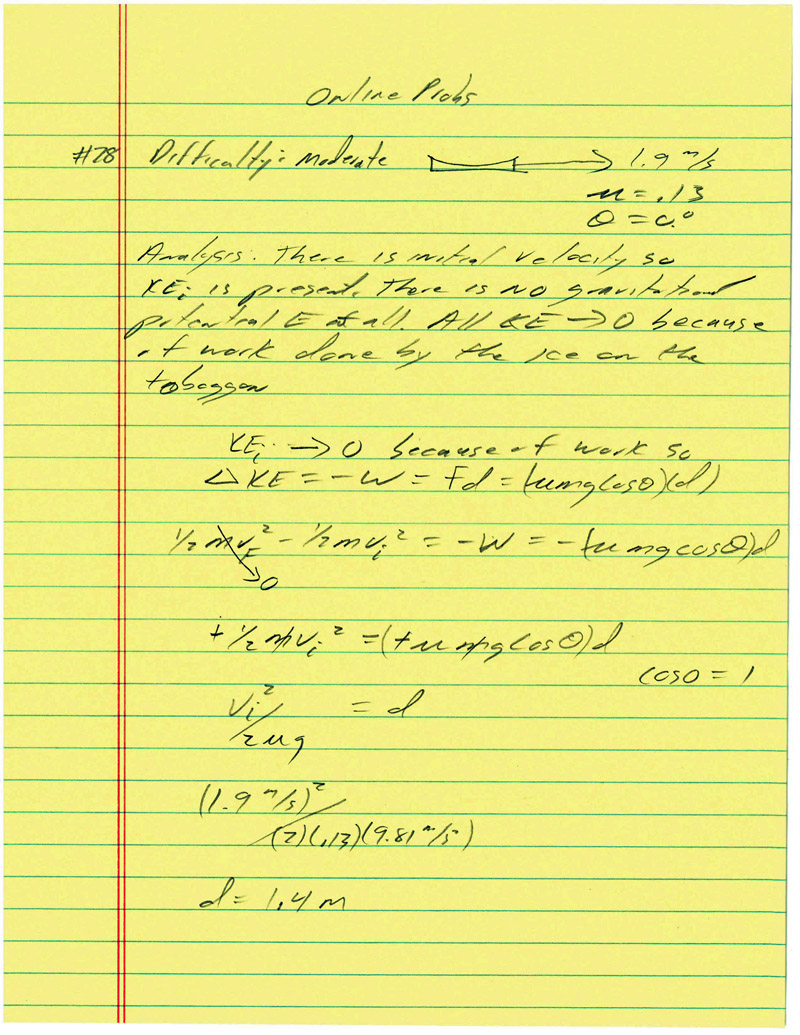 Online Probs
#28 Difficulty: Moderate → 1.9 m/s
μ = .13
θ = 0.°
Analysis: There is initial velocity so
KEi is present. There is no gravitational
potential E at all. All KE → 0 because
of work done by the ice on the
toboggan
KEi → 0 because of work so
ΔKE = -W = Fd = (μmgcosθ)(d)
1/2 mvF² - 1/2 mvi² = -W = -(μmgcosθ)d
→ 0
+ 1/2 mvi² = (+μmgcosθ)d
cos0 = 1
vi²/2μg = d
(1.9 m/s)²/
(2)(.13)(9.81 m/s²)
d = 1.4 m